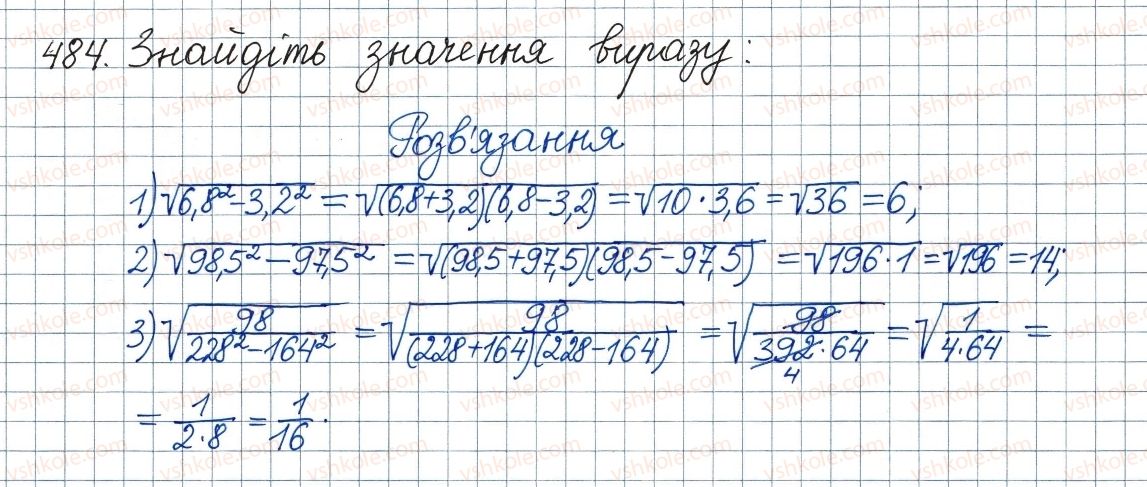 484. Знайдіть значення виразу:
Розв'язання
1) √(6,8² − 3,2²) = √((6,8+3,2)(6,8−3,2)) = √(10 · 3,6) = √36 = 6;
2) √(98,5² − 97,5²) = √((98,5+97,5)(98,5−97,5)) = √(196 · 1) = √196 = 14;
3) √(98/(228² − 164²)) = √(98/((228+164)(228−164))) = √(98/(392 · 64)) = √(1/(4 · 64)) =
4
= 1/(2 · 8) = 1/16.